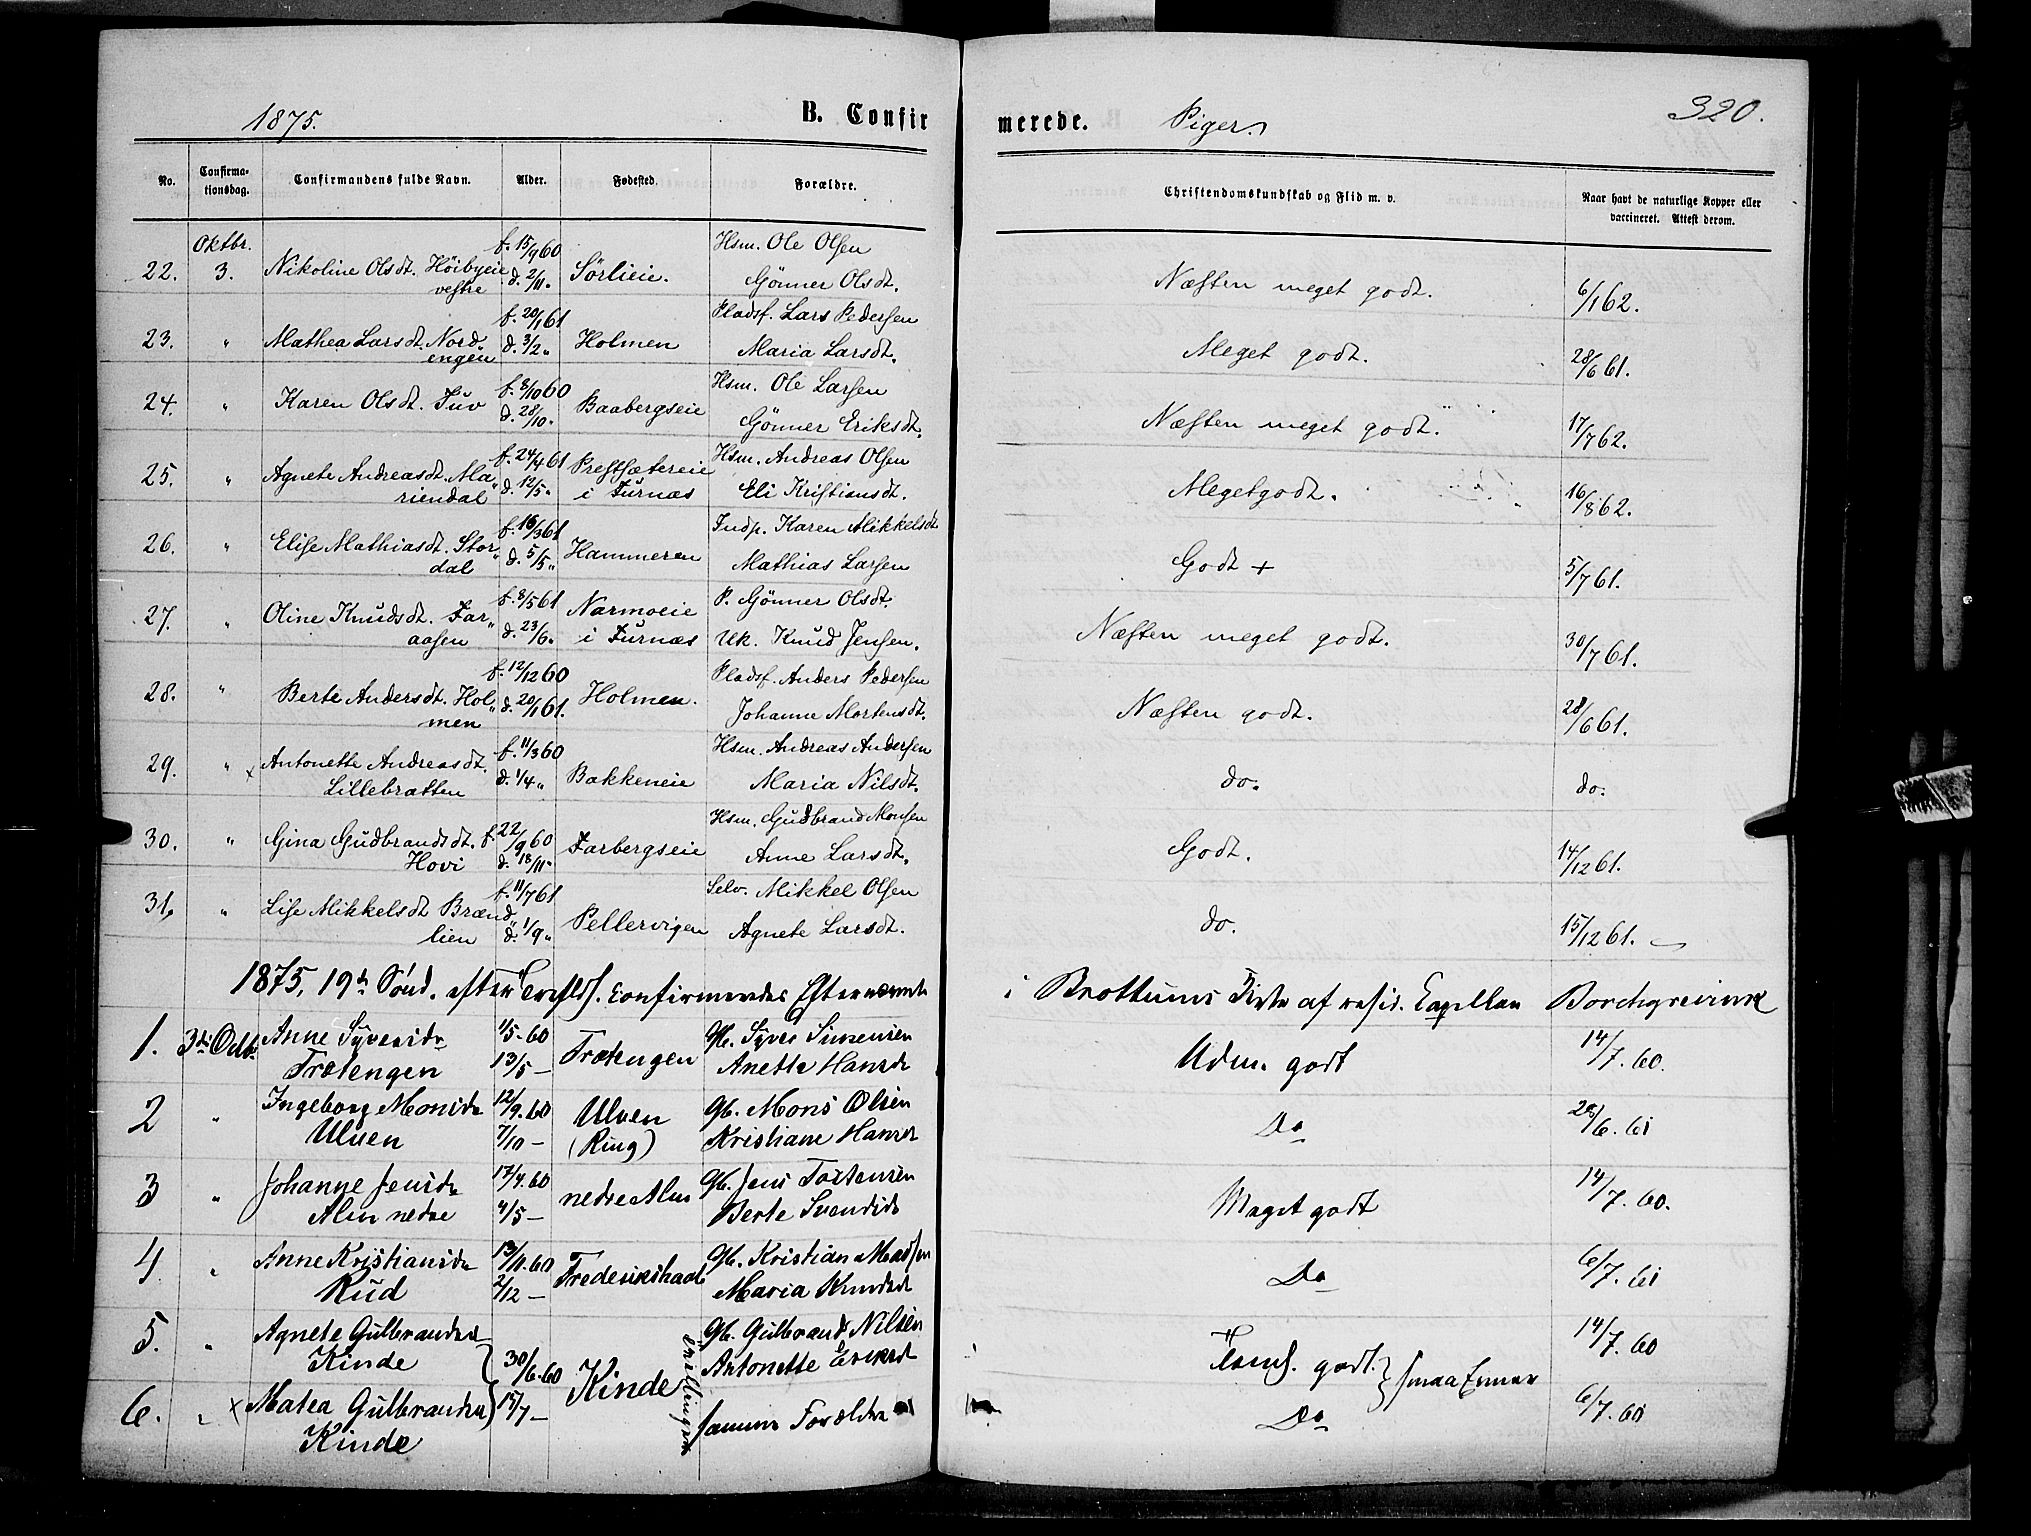 1875.
B. Confirmerede.
Piger.
320.
No.
Confirma-
tionsdag.
Confirmandens fulde Navn.
Alder.
Fødested.
Forældre.
Christendomskundskab og Flid m. v.
Naar havt de naturlige Kopper eller
vaccineret. Attest derom.
Oktbr.
22. 3. Nikoline Olsdt. Höibyeie
vestre
f. 15/9 60
d. 2/11 "
Sörlieie.
Hsm. Ole Olsen
Gönner Olsdt.
Næsten meget godt.
6/1 62.
23. " Mathea Larsdt. Nord-
engen
f. 20/1 61
d. 3/2 "
Holmen
Pladsf. Lars Pedersen
Maria Larsdt.
Meget godt.
28/6 61.
24. " Karen Olsdt. Tuv
f. 8/10 60
d. 28/10 "
Baabergseie
Hsm. Ole Larsen
Gönner Eriksdt.
Næsten meget godt.
17/7 62.
25. " Agnete Andreasdt. Ma-
riendal
f. 24/4 61
d. 12/5 "
Prestsætereie
i Furnæs
Hsm. Andreas Olsen
Eli Kristiansdt.
Megetgodt.
16/8 62.
26. " Elise Mathiasdt. Stor-
dal
f. 16/3 61
d. 5/5 "
Hammeren
Indp. Karen Mikkelsdt
Mathias Larsen
Godt +
5/7 61.
27. " Oline Knudsdt. Far-
aasen
f. 8/5 61
d. 23/6 "
Narmoeie
i Furnæs
P. Gönner Olsdt.
Uk. Knud Jensen.
Næsten meget godt.
30/7 61.
28. " Berte Andersdt. Hol-
men
f. 12/12 60
d. 20/1 61.
Holmen.
Pladsf. Anders Pedersen
Johanne Mortensdt.
Næsten godt.
28/6 61.
29. " x Antonette Andreasdt.
Lillebratten
f. 11/3 60
d. 1/4 "
Bakkeneie
Hsm. Andreas Andersen
Maria Nilsdt.
do.
do.
30. " Gina Gudbrandsdt.
Hovi
f. 22/9 60
d. 18/11 "
Farbergseie
Hsm. Gudbrand Monsen
Anne Larsdt.
Godt.
14/12 61.
31. " Lise Mikkelsdt Brænd-
lien
f. 11/7 61
d. 1/9 "
Pellervigen
Selv. Mikkel Olsen
Agnete Larsdt.
do.
15/12 61.
1875, 19de Sönd. efter Treflds. confirmeredes Efternævnte i Brøttums Kirke af resid. Capellan Borchgrevink
1. 3die Octbr Anne Syversdr
Trætengen
1/5-60
13/5 -
Trætengen
Gb. Syver Simensen
Anette Hansdr
Udm. godt
14/7. 60.
2 " Ingeborg Monsdr
Ulven
12/9. 60
7/10 -
Ulven
(Ring)
Gb. Mons Olsen
Kristiane Hansdr
Do
28/6. 61
3 " Johanne Jensdr
Alm nedre
17/4. 60
4/5 -
nedre Alm
Gb. Jens Tostensen
Berte Svendsdr
Meget godt
14/7. 60.
4 " Anne Kristiansdr
Rud
13/11. 60
2/12 -
Frederikshald
Gb. Kristian Madsen
Maria Knudsdr
Do
6/7. 61
5. " Agnete Gulbrandsdr
Kinde
30/6. 60
Kinde
Gb. Gulbrand Nilsen
Antonette Ericsdr
godt.
14/7. 60
6. " x Matea Gulbrandsdr
Kinde
15/7 -
Tvillinger
samme Forældre
Do
6/7. 61
smaa Evner